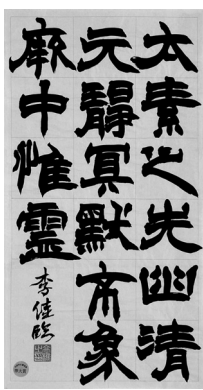 太素之先幽清
元靜冥默象
厥中惟靈
李佳临